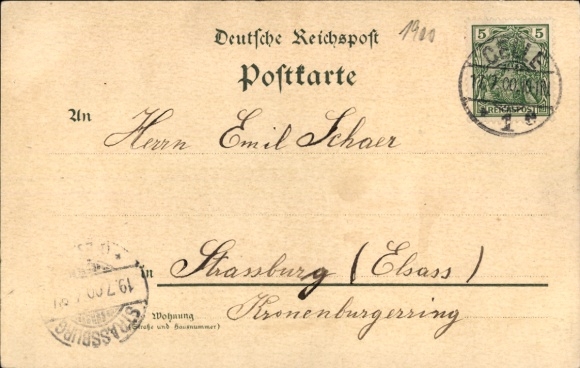 Deutsche Reichspost
1900
Postkarte
5 5
CELLE
REICHSPOST
1 c
An
Herrn Emil Schaer
in Strassburg (Elsass)
Kronenburgerring
Wohnung
(Straße und Hausnummer)
19.7.00
STRASSBURG